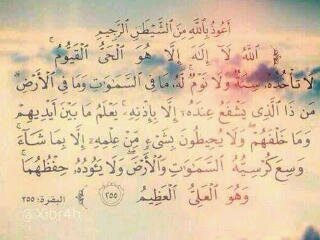 أَعُوذُ بِٱللَّهِ مِنَ ٱلشَّيْطَٰنِ ٱلرَّجِيمِ
ٱللَّهُ لَآ إِلَٰهَ إِلَّا هُوَ ٱلْحَىُّ ٱلْقَيُّومُ ۚ
لَا تَأْخُذُهُۥ سِنَةٌ وَلَا نَوْمٌ ۚ لَّهُۥ مَا فِى ٱلسَّمَٰوَٰتِ وَمَا فِى ٱلْأَرْضِ ۗ
مَن ذَا ٱلَّذِى يَشْفَعُ عِندَهُۥٓ إِلَّا بِإِذْنِهِۦ ۚ يَعْلَمُ مَا بَيْنَ أَيْدِيهِمْ
وَمَا خَلْفَهُمْ ۖ وَلَا يُحِيطُونَ بِشَىْءٍ مِّنْ عِلْمِهِۦٓ إِلَّا بِمَا شَآءَ ۚ
وَسِعَ كُرْسِيُّهُ ٱلسَّمَٰوَٰتِ وَٱلْأَرْضَ ۖ وَلَا يَـُٔودُهُۥ حِفْظُهُمَا ۚ
وَهُوَ ٱلْعَلِىُّ ٱلْعَظِيمُ ٢٥٥ البقرة: ٢٥٥
@Xibr4h